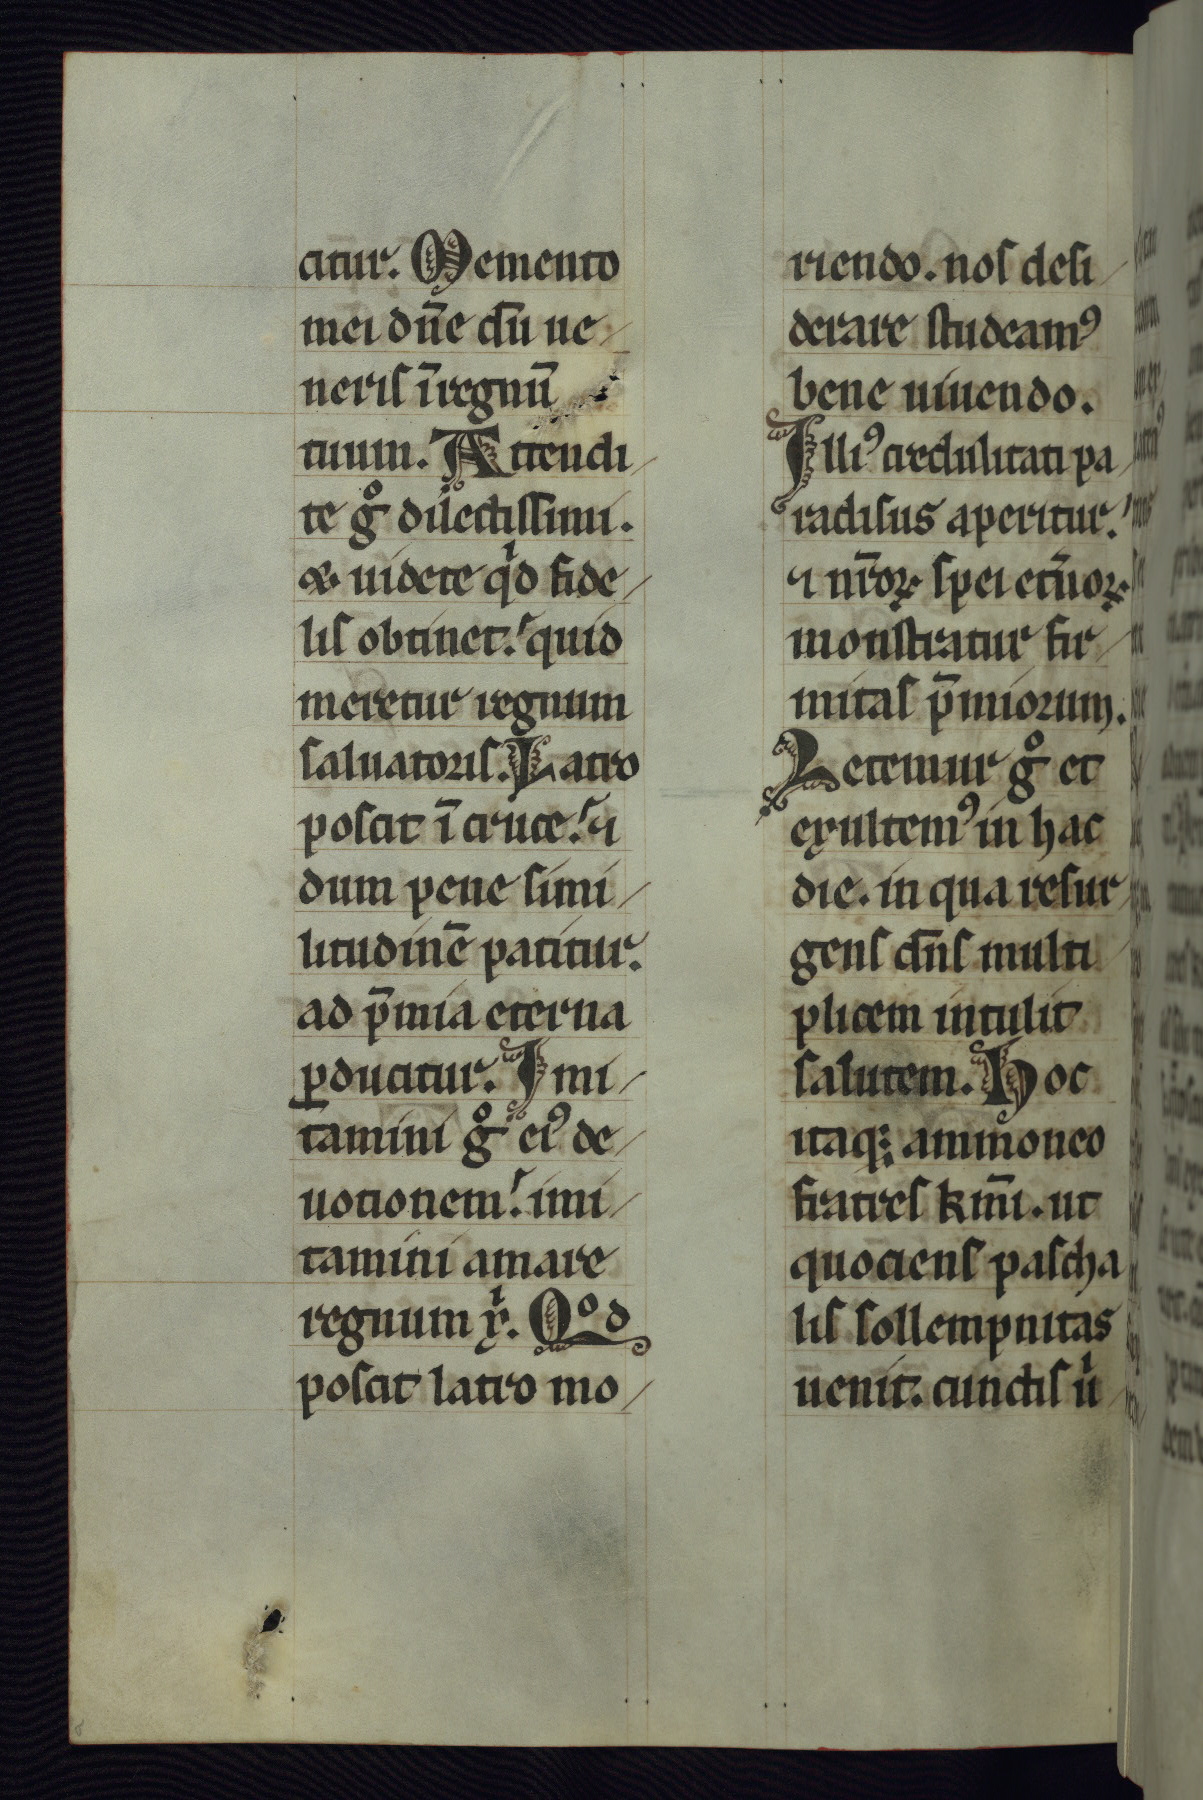 citur. Memento
mei dn̄e cū ue
neris īregnū
tuum. Attendi
te gͦ dilectissimi.
& uidete qͥd fide
lis obtinet. quid
meretur regnum
saluatoris. Latro
poscit ī cruce. ⁊
dum pene simi
litudinē patitur.
ad p̄mia eterna
ꝑducitur. Imi
tamini gͦ eiꝰ de
uotionem. imi
tamini amare
regnum xͥ. Qͦd
poscit latro mo
riendo. nos desi
derare studeamꝰ
bene uiuendo.
Illiꝰ credulitati pa
radisus aperitur.
⁊ nr̄oꝝ spei et̄noꝝ
monstratur fir
mitas p̄miorum.
Letemur gͦ et
exultemꝰ in hac
die. in qua resur
gens dn̄s multi
plicem intulit
salutem. Hoc
itaq; ammoneo
fratres km̄i. ut
quociens pascha
lis sollempnitas
uenit. cunctis uͥ